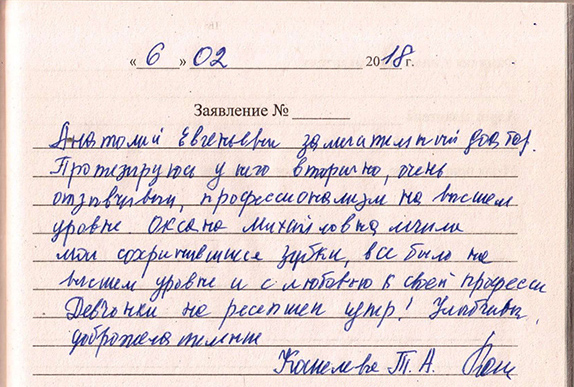 « 6 » 02 2018 г.
Заявление №
Анатолий Евгеньевич замечательный доктор.
Протезируюсь у него вторично, очень
отзывчивый, профессионализм на высшем
уровне. Оксана Михайловна лечила
мои сохранившиеся зубки, все было на
высшем уровне и с любовью к своей професси
Девчонки на ресепшен супер! Улыбчивы,
доброжелательные
Т. А.